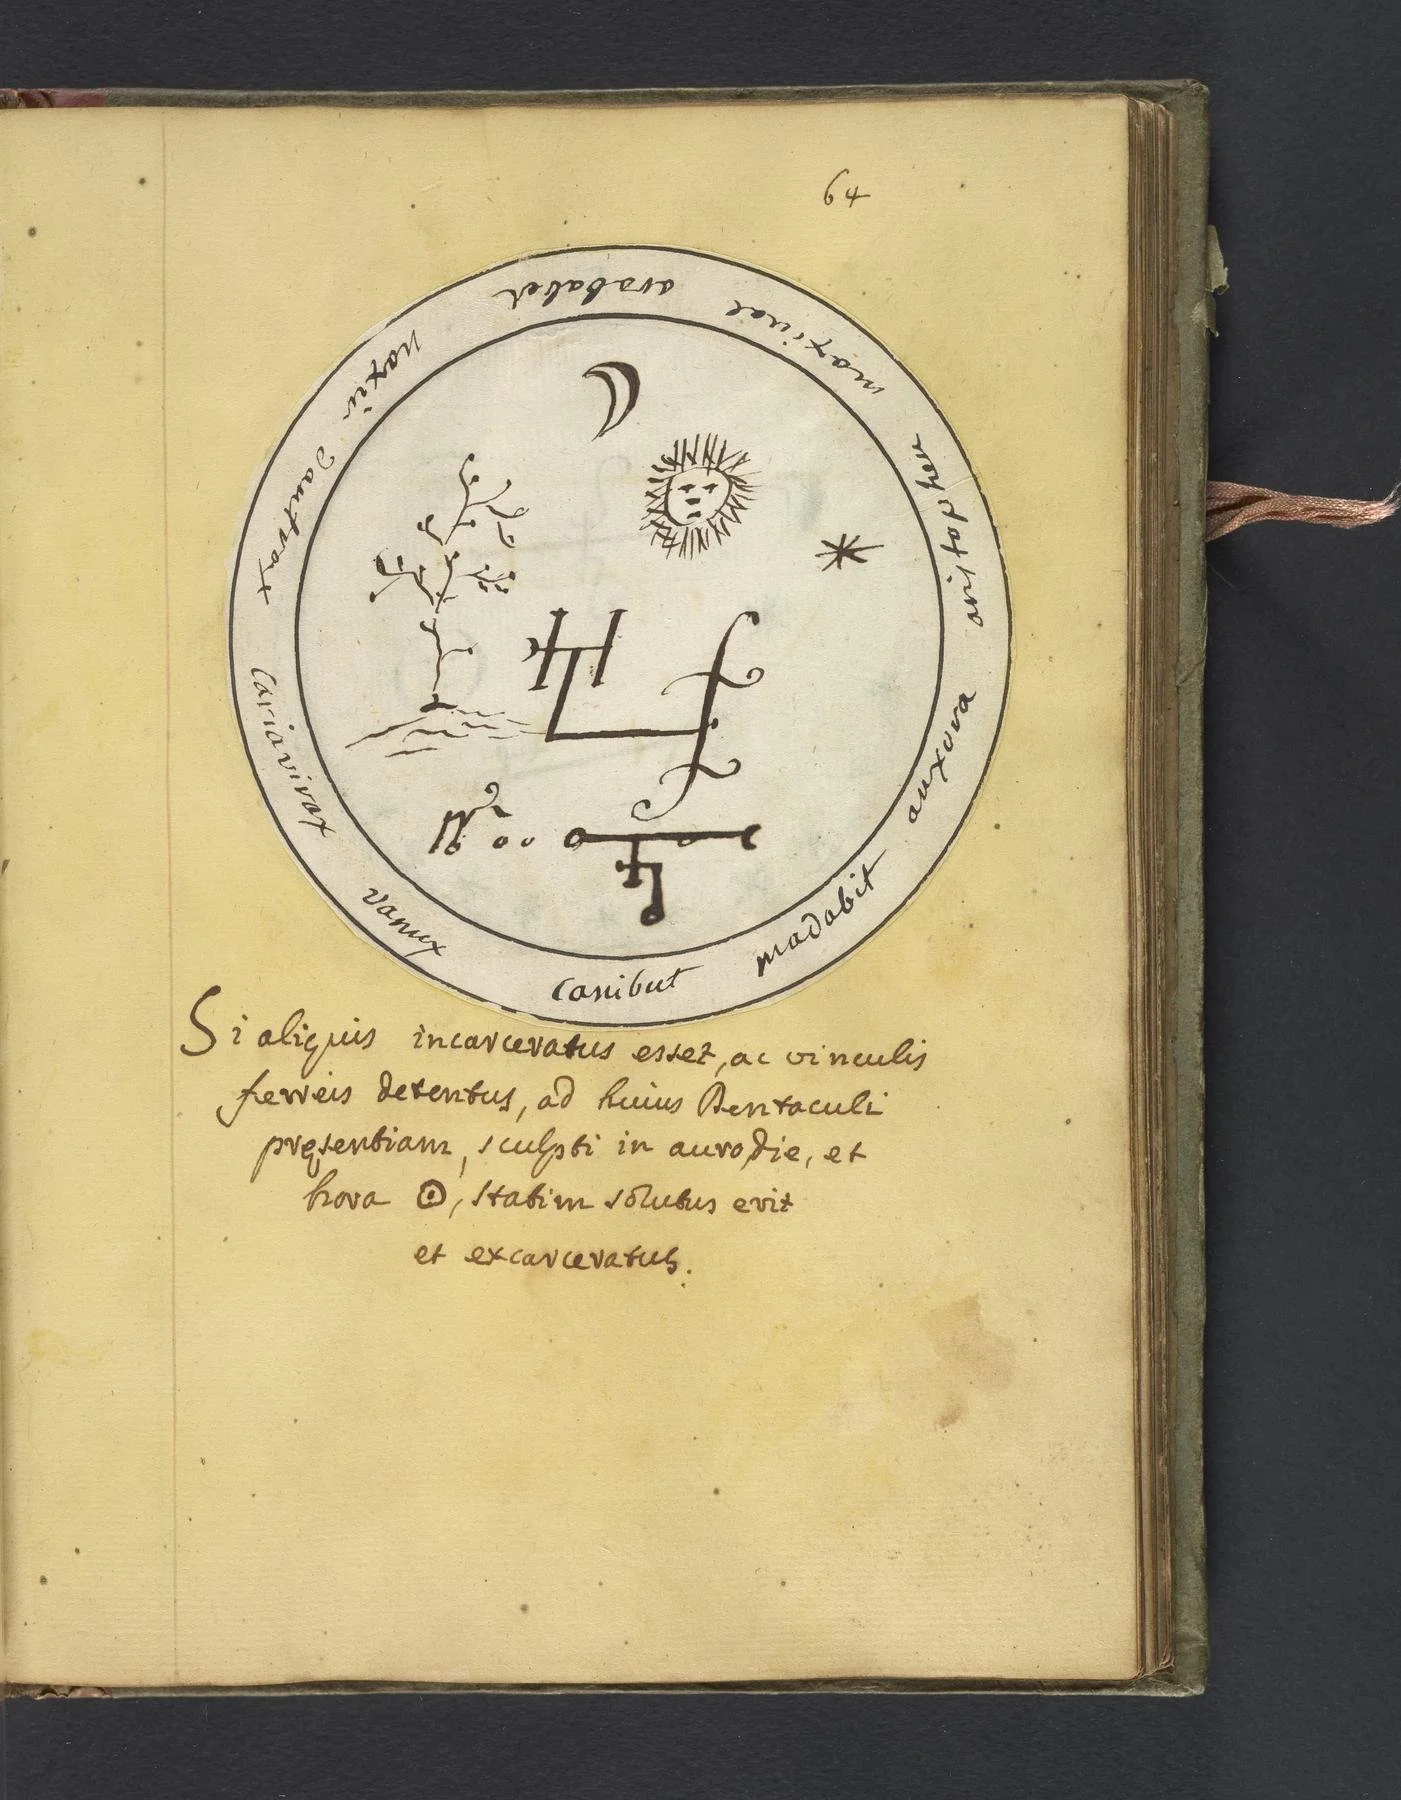 64
arabalet
maxinal
aristop hen
auxova
madabit
canibut
vanux
Cariavirax
dantrax
Naxir
Si aliquis incarceratus esset, ac vinculis
ferreis detentus, ad huius Pentaculi
pręsentiam, sculpti in auro, die, et
hora ☉, statim solutus erit
et excarceratus.